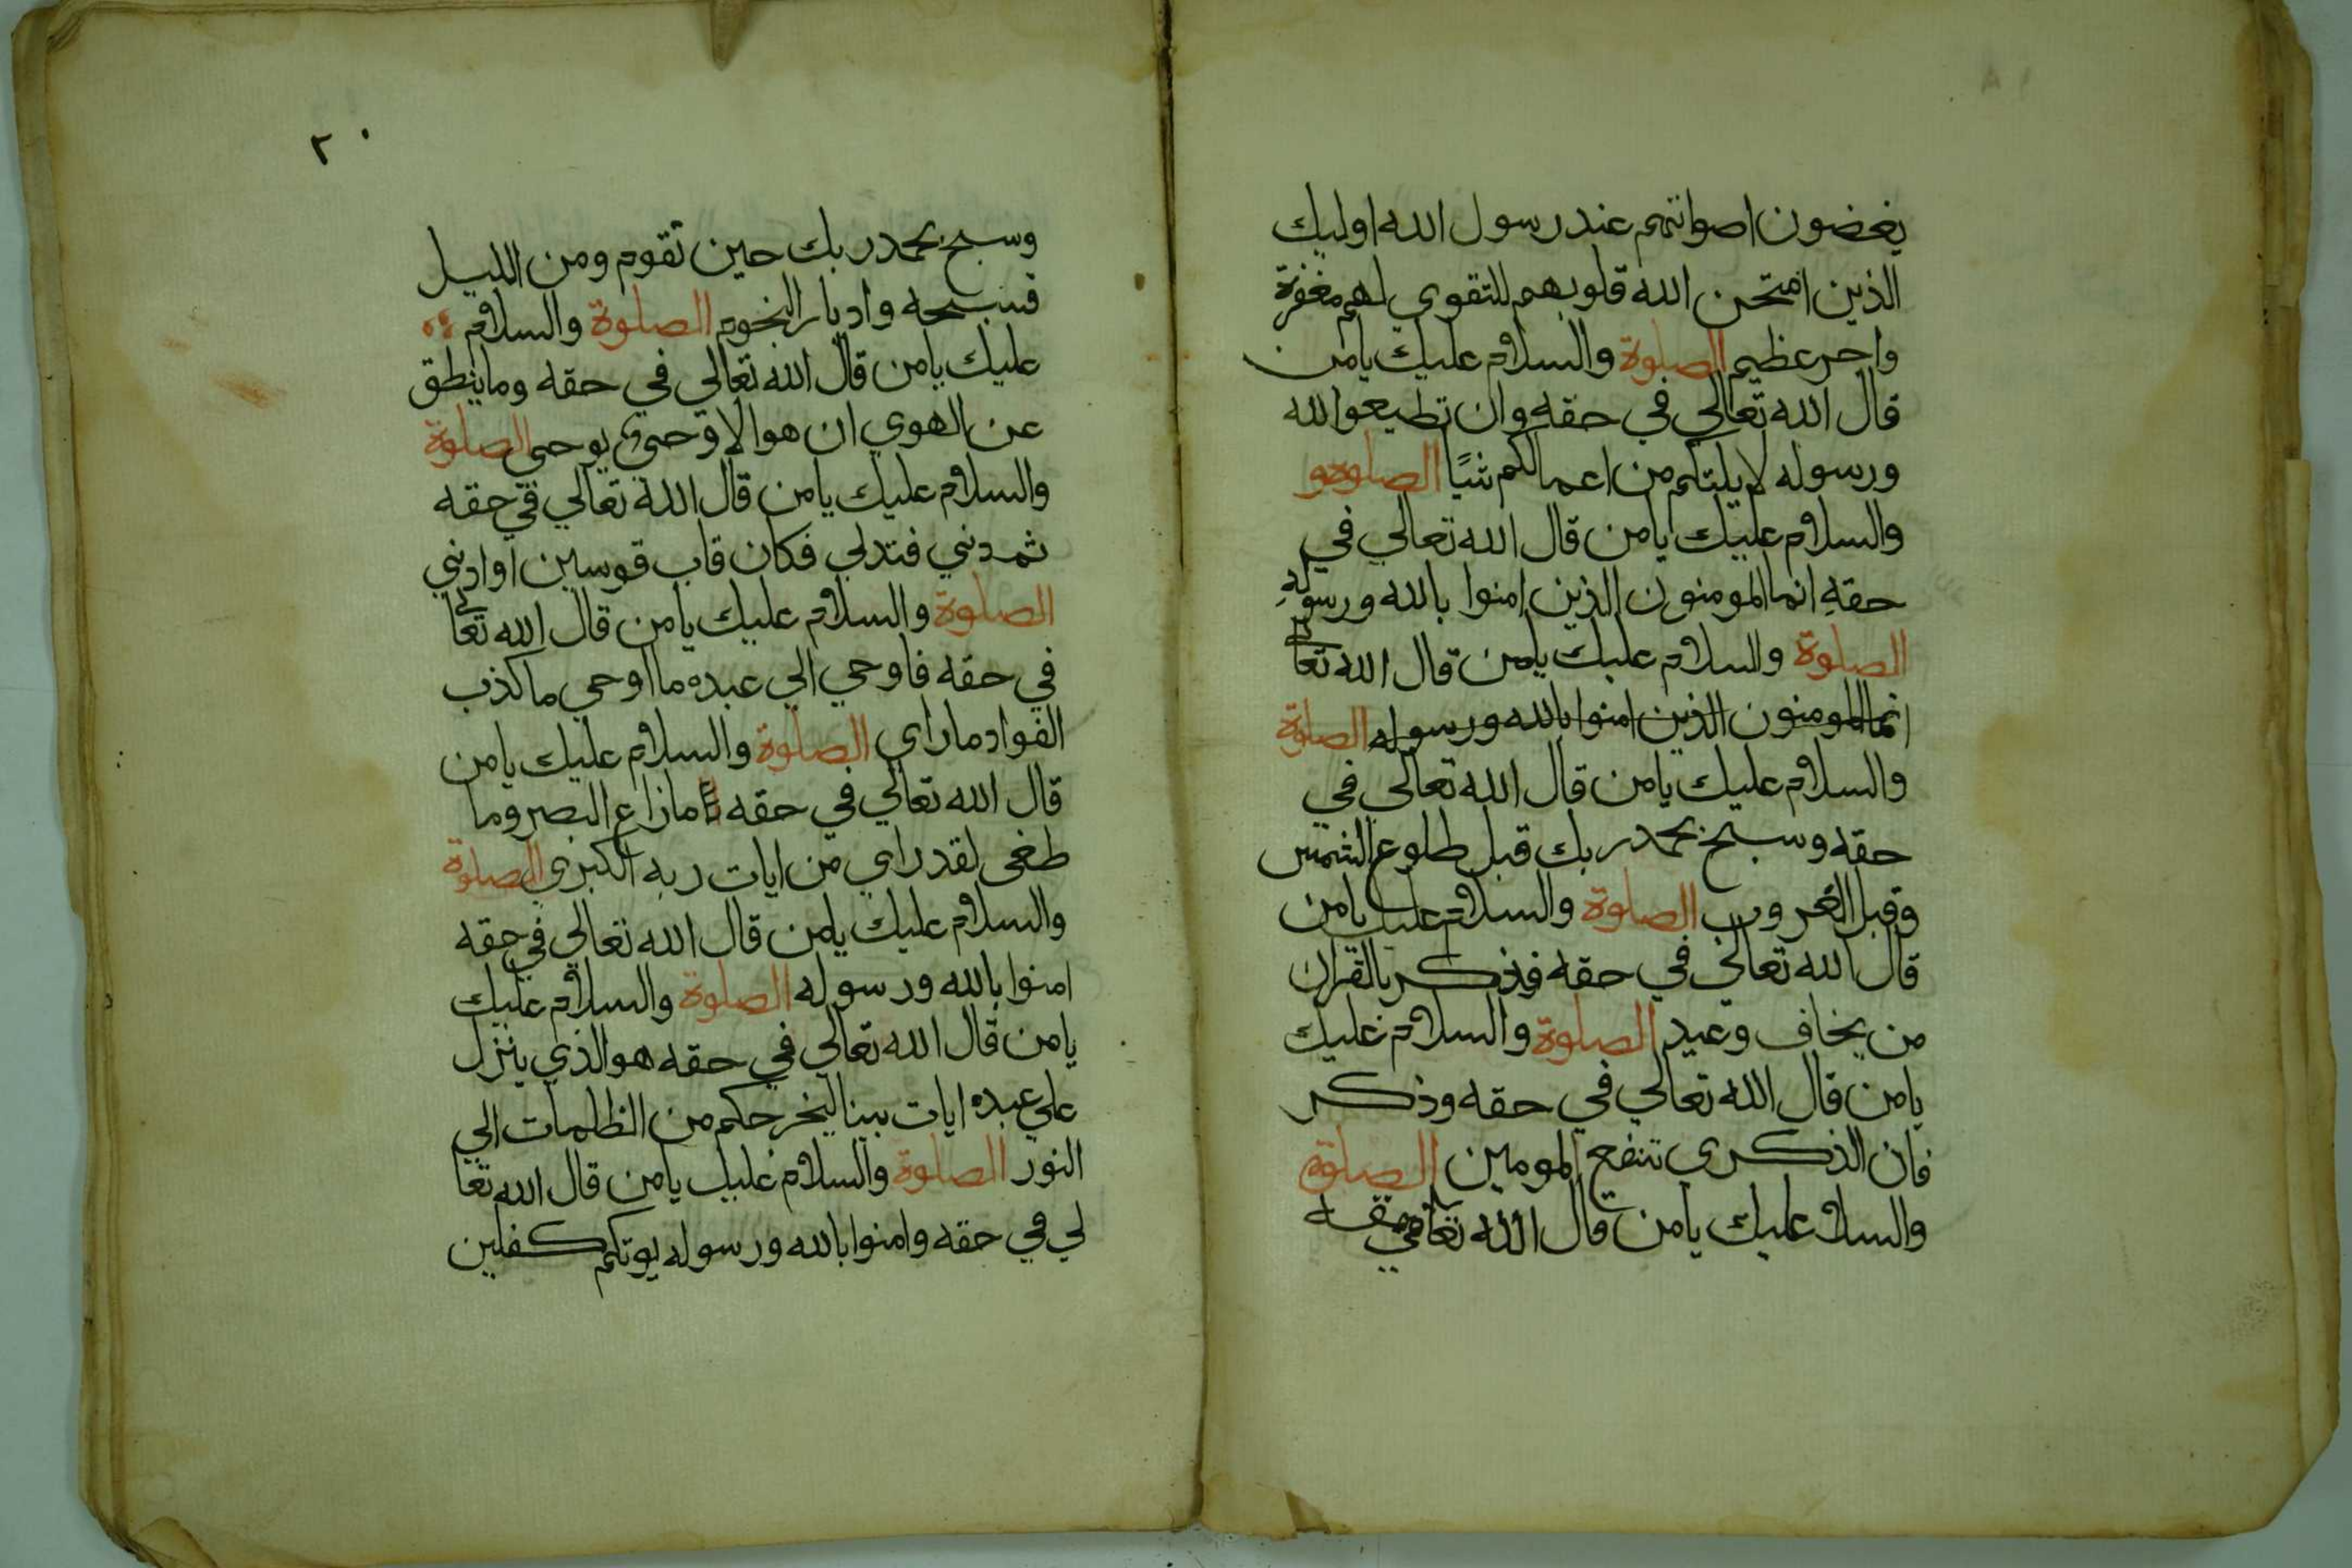 يغضون اصواتهم عند رسول الله اوليك
الذين امتحن الله قلوبهم للتقوي لهم مغفرة
واجر عظيم الصلوة والسلام عليك يامن
قال الله تعالي في حقه وان تطيعوا الله
ورسوله لا يلتكم من اعمالكم شيًا الصلوة و
والسلام عليك يامن قال الله تعالي في
حقهِ انما المومنون الذين امنوا بالله ورسولهِ
الصلوة والسلام عليك يامن قال الله تعالي
انما المومنون الذين امنوا بالله ورسوله الصلوة
والسلام عليك يامن قال الله تعالي في
حقه وسبح بحمد ربك قبل طلوع الشمس
وقبل الغروب الصلوة والسلام عليك يامن
قال الله تعالي في حقه فذكر بالقران
من يخاف وعيد الصلوة والسلام عليك
يامن قال الله تعالي في حقه وذكر
فان الذكري تنفع المومين الصلوة
والسلام عليك يامن قال الله تعالي في حقه
٢٠
وسبح بحمد ربك حين تقوم ومن الليل
فسبحه وادبار النجوم الصلوة والسلام
عليك يامن قال الله تعالي في حقه وما ينطق
عن الهوي ان هو الا وحي يوحي الصلوة
والسلام عليك يامن قال الله تعالي في حقه
ثم دني فتدلي فكان قاب قوسين او ادني
الصلوة والسلام عليك يامن قال الله تعالي
في حقه فاوحي الي عبده ما اوحي ما كذب
الفواد ما راي الصلوة والسلام عليك يامن
قال الله تعالي في حقه مازاغ البصر وما
طغى لقد راي من ايات ربه الكبري الصلوة
والسلام عليك يامن قال الله تعالي في حقه
امنوا بالله ورسوله الصلوة والسلام عليك
يامن قال الله تعالي في حقه هو الذي ينزل
علي عبده ايات بينا ليخرجكم من الظلمات الي
النور الصلوة والسلام عليك يامن قال الله تعا
لي في حقه وامنوا بالله ورسوله يوتكم كفلين